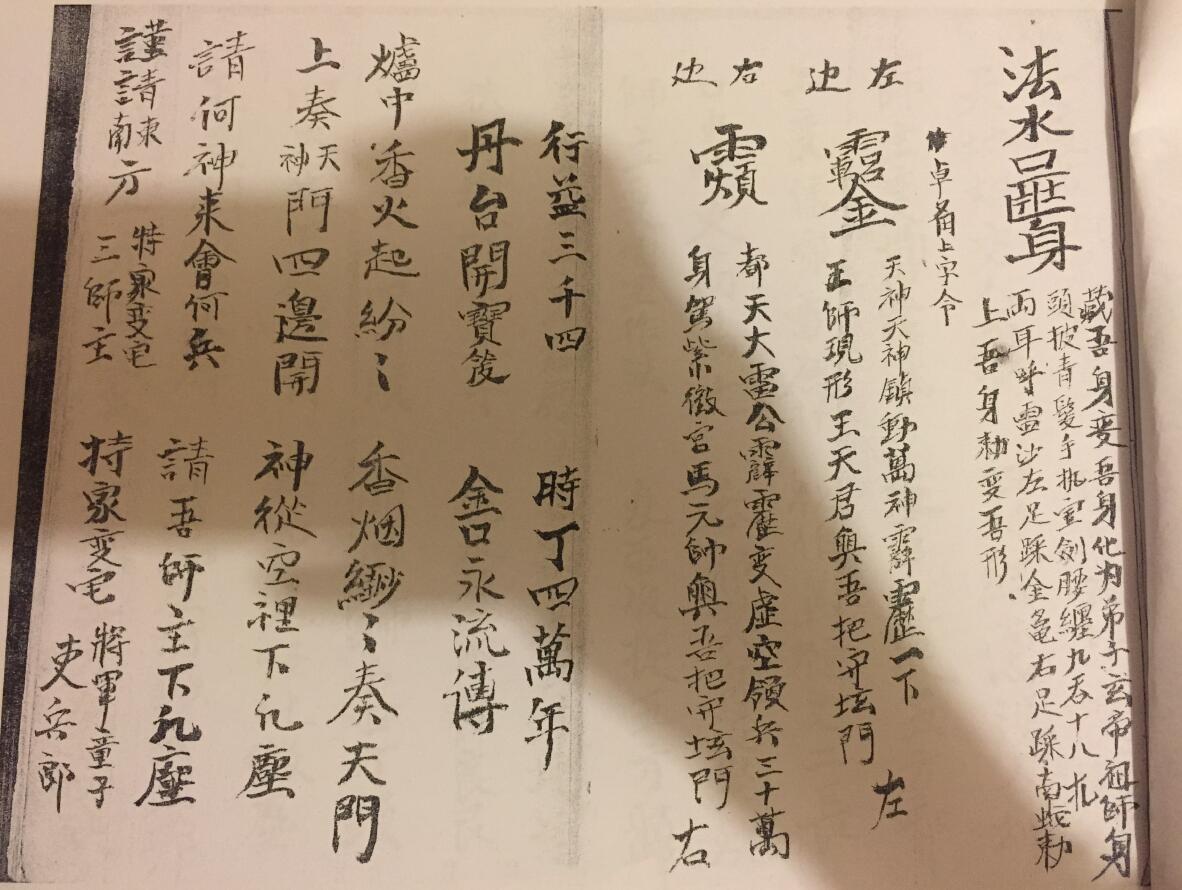 法水匨身
藏吾身変吾身化为弟子玄帝祖師身
頭披青髮手执宝劍腰纏九吞十八扎
両耳呼雷沙左足踩金龟右足踩南蛇勅
上吾身勅变吾形
卓角上字令
左边
金
天神天神鎮動萬神霹靂一下
王師現形王天君與吾把守坛門 左
右边
都天大雷公霹靂变虛空領兵三十萬
身駕紫微宮馬元帥與吾把守坛門 右
行益三千四 時丁四萬年
丹台開寶笈 金口永流傳
爐中香火起紛〻 香烟緲〻奏天門
上奏天神門四邊開 神從空裡下凡塵
請何神來會何兵 請吾師主下凡塵
謹請東南方 特家变宅三師主 特家変宅 將軍童子吏兵郎